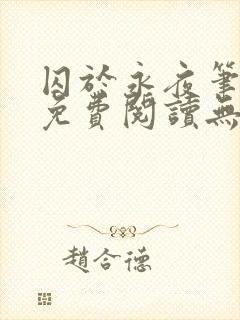 囚於永夜筆
免費閱讀無
趙合德